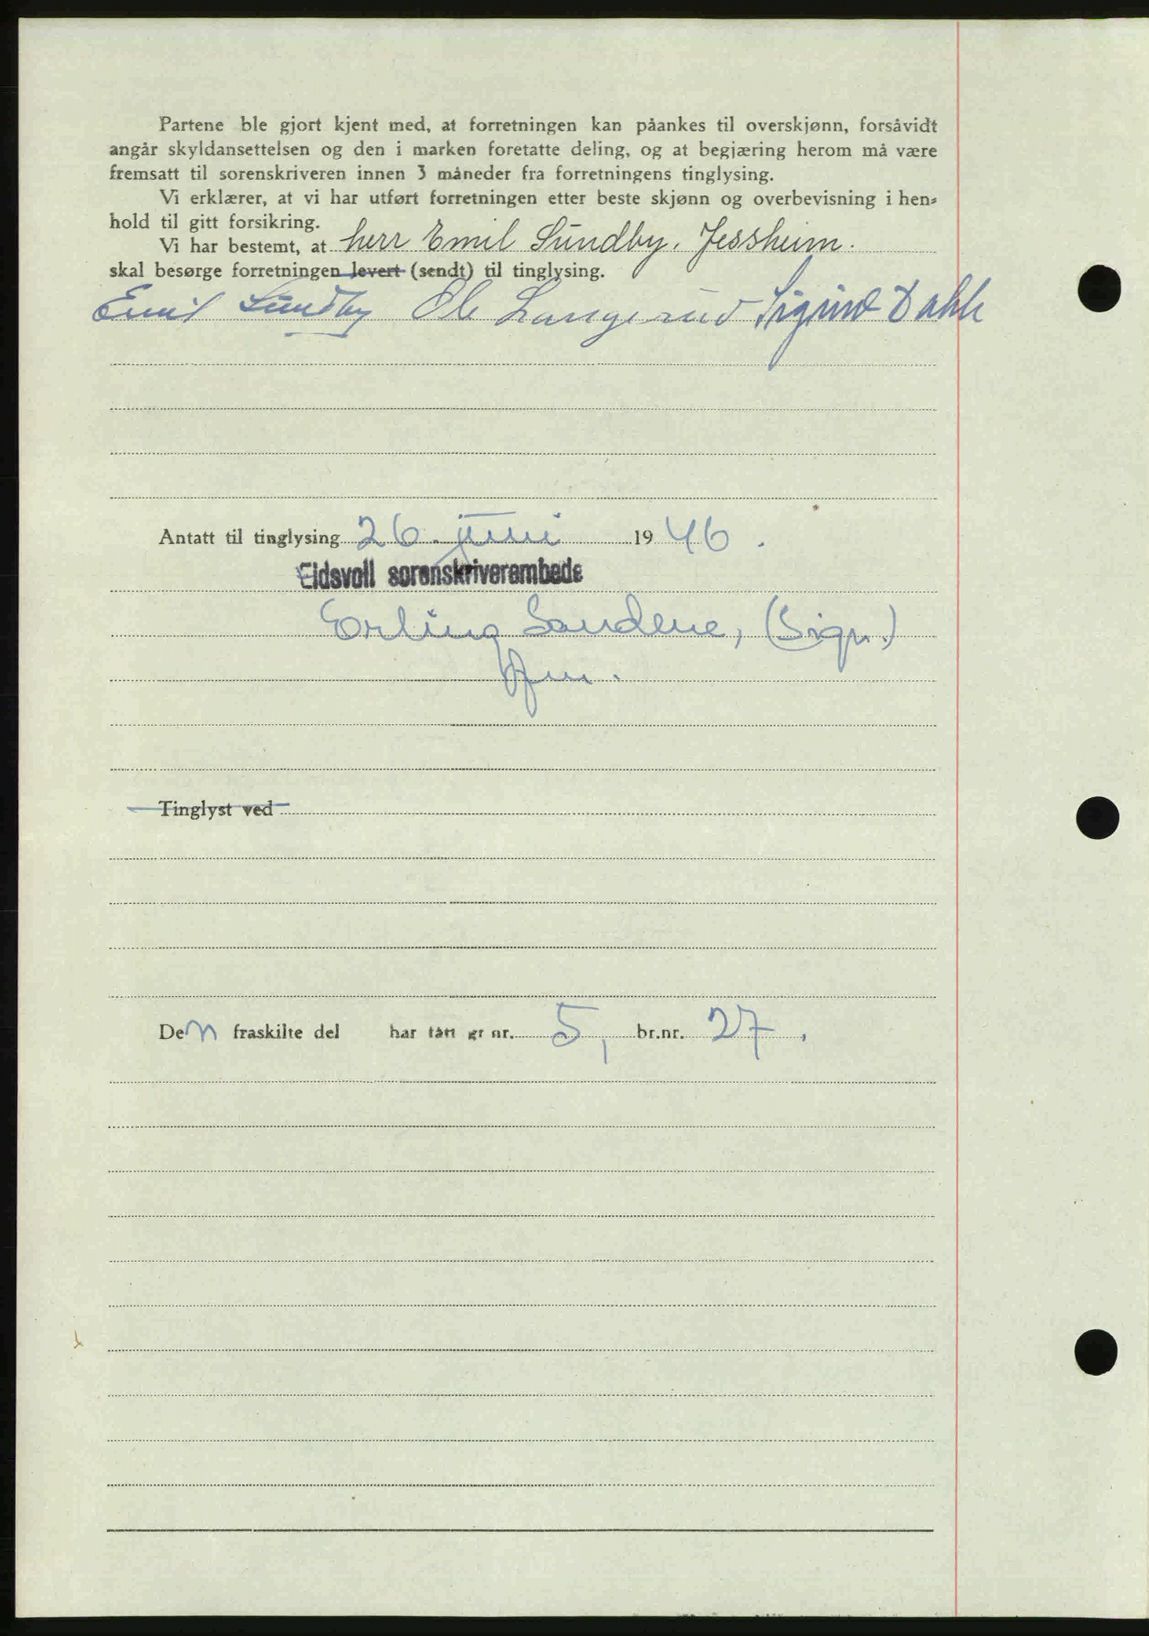 Partene ble gjort kjent med, at forretningen kan påankes til overskjønn, forsåvidt
angår skyldansettelsen og den i marken foretatte deling, og at begjæring herom må være
fremsatt til sorenskriveren innen 3 måneder fra forretningens tinglysing.
Vi erklærer, at vi har utført forretningen etter beste skjønn og overbevisning i hen-
hold til gitt forsikring.
Vi har bestemt, at herr Emil Sundby, Jessheim.
skal besørge forretningen levert (sendt) til tinglysing.
Emil Sundby Ole Langerud Sigurd Dahle
Antatt til tinglysing 26. juni 1946.
Eidsvoll sorenskriverembede
Erling Sandene, (Sign.)
fm.
Tinglyst ved
Den fraskilte del har fått gr nr. 5, br.nr. 27.